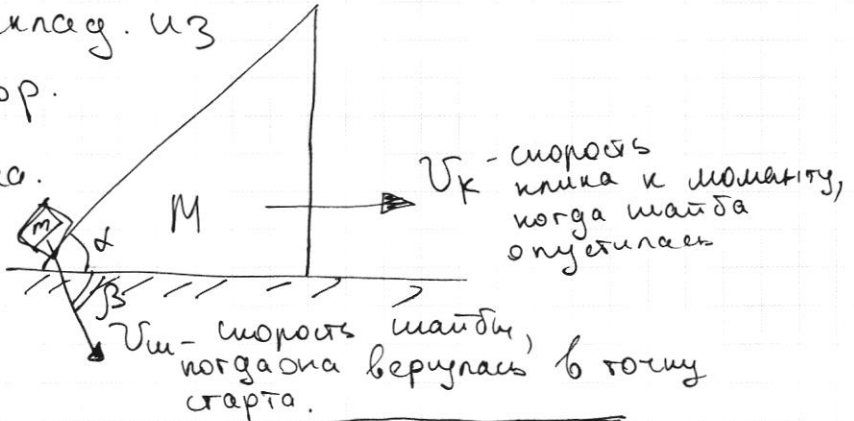 клад. из
ор.
ка.
m
α
M
β
Uк - скорость
клина к моменту,
когда шайба
опустилась
Uш - скорость шайбы,
когда она вернулась в точку
старта.